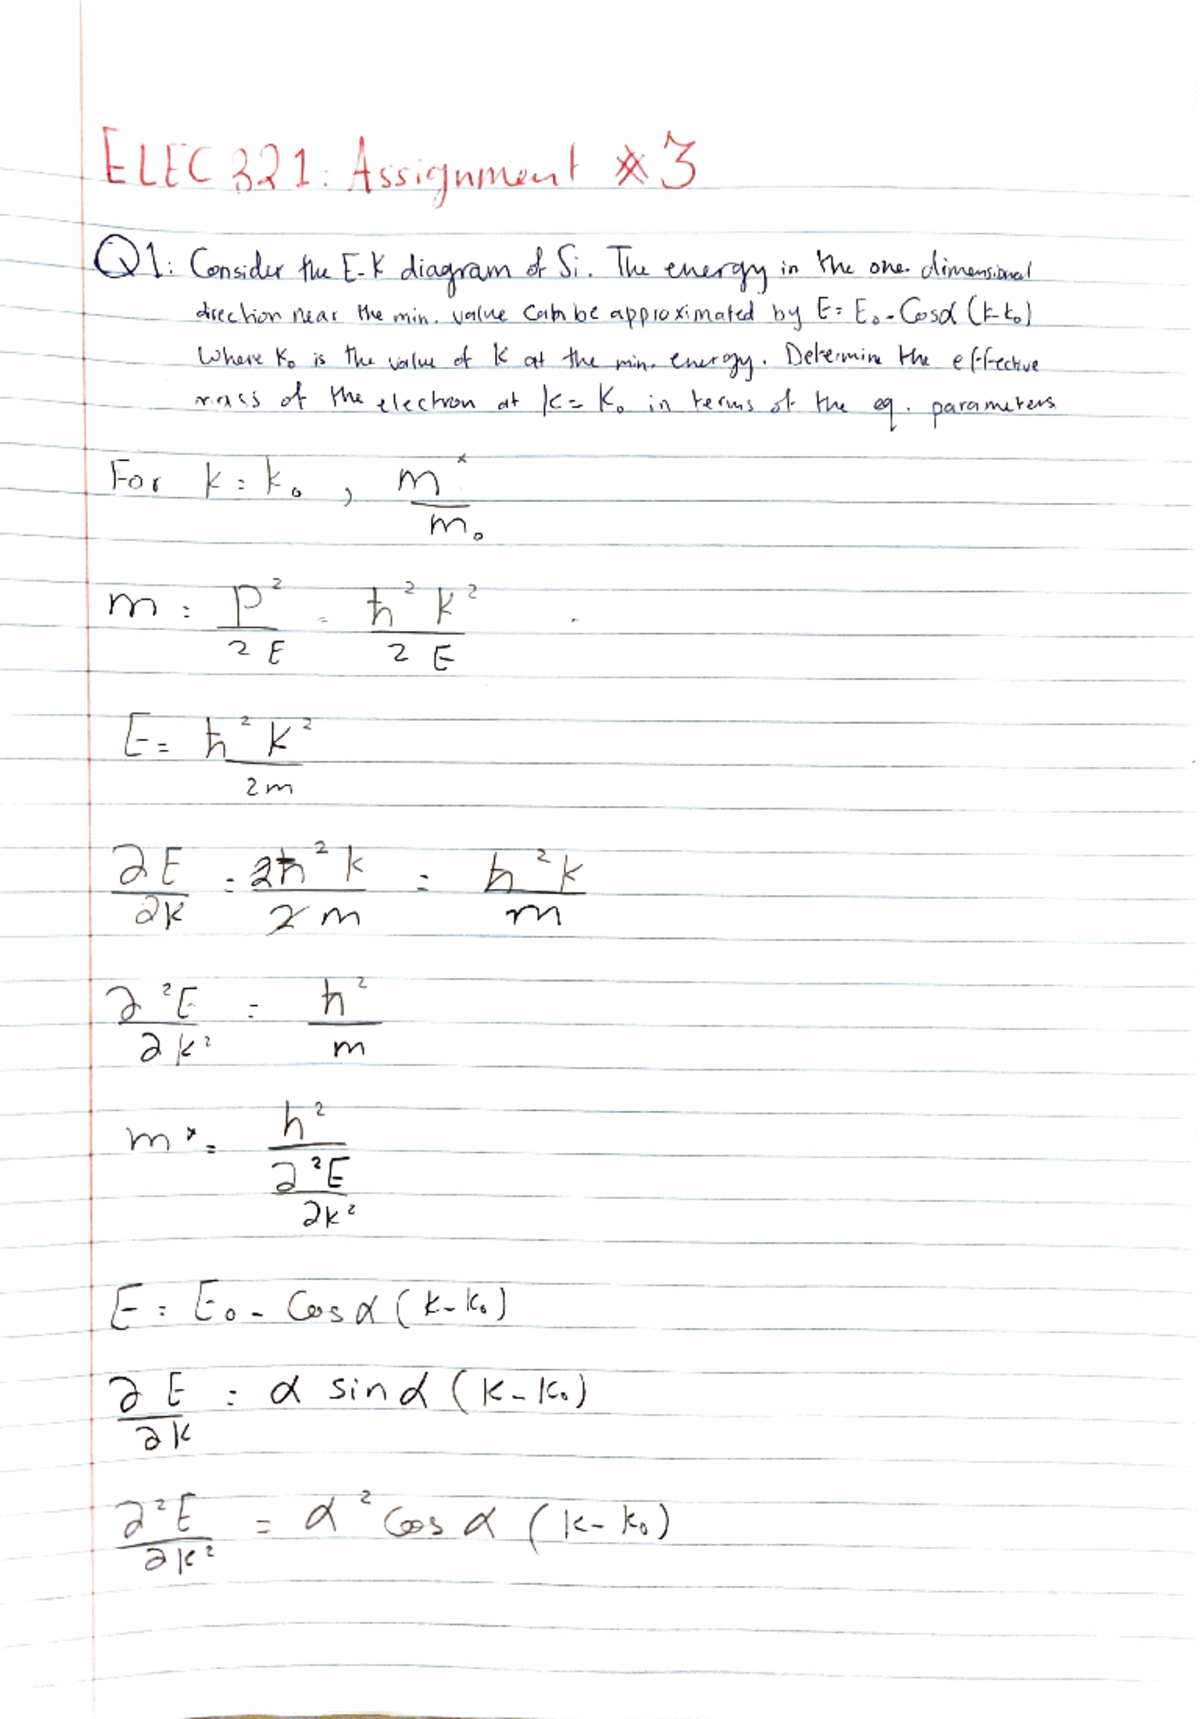 ELEC 321: Assignment #3
Q1: Consider the E-K diagram of Si. The energy in the one dimensional
direction near the min. value can be approximated by E = E₀ - Cosα(k-k₀)
Where K₀ is the value of K at the min. energy. Determine the effective
mass of the electron at k = K₀ in terms of the eq. parameters
For k = k₀, m*/m₀
m = P²/2E = ħ²k²/2E
E = ħ²k²/2m
∂E/∂k = 2ħ²k/2m = ħ²k/m
∂²E/∂k² = ħ²/m
m* = ħ²/(∂²E/∂k²)
E = E₀ - Cosα(k-k₀)
∂E/∂k = α sinα(k-k₀)
∂²E/∂k² = α² Cosα(k-k₀)